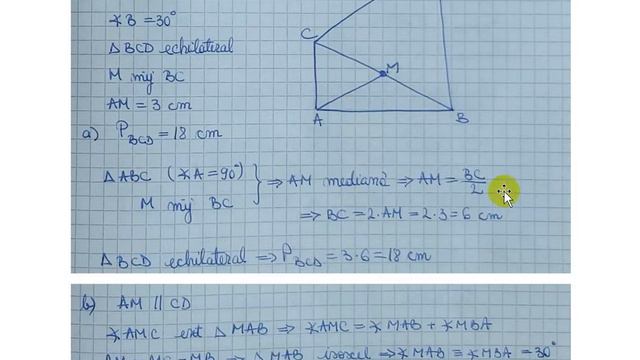 ∢B = 30°
△BCD echilateral
M mij BC
AM = 3 cm
C
M
A
B
a) P_BCD = 18 cm
△ABC (∢A = 90°)
M mij BC
} ⇒ AM mediană ⇒ AM = BC/2
⇒ BC = 2·AM = 2·3 = 6 cm
△BCD echilateral ⇒ P_BCD = 3·6 = 18 cm
b) AM || CD
∢AMC ext △MAB ⇒ ∢AMC = ∢MAB + ∢MBA
⇒ △MAB isoscel ⇒ ∢MAB ≡ ∢MBA = 30°